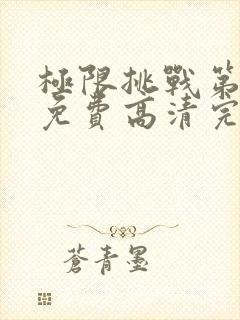 極限挑戰第
免費高清完
蒼青墨